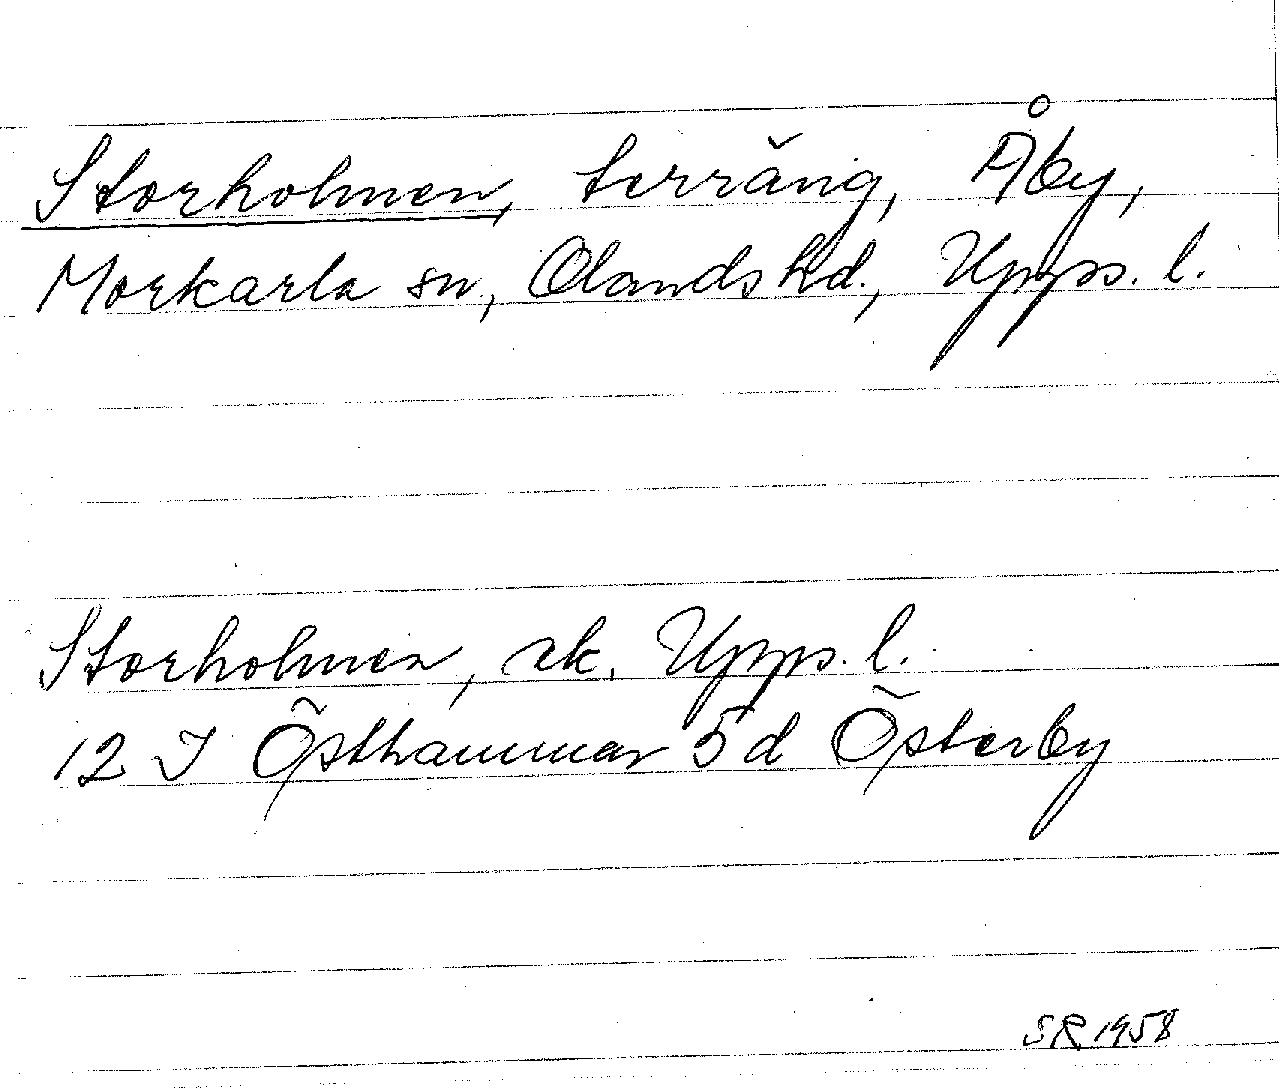 Storholmen, terräng, Åby,
Morkarla sn, Olands hd., Upps. l.
Storholmen, ek. Upps. l.
12 I Östhammar 5 d Österby
SR 1958